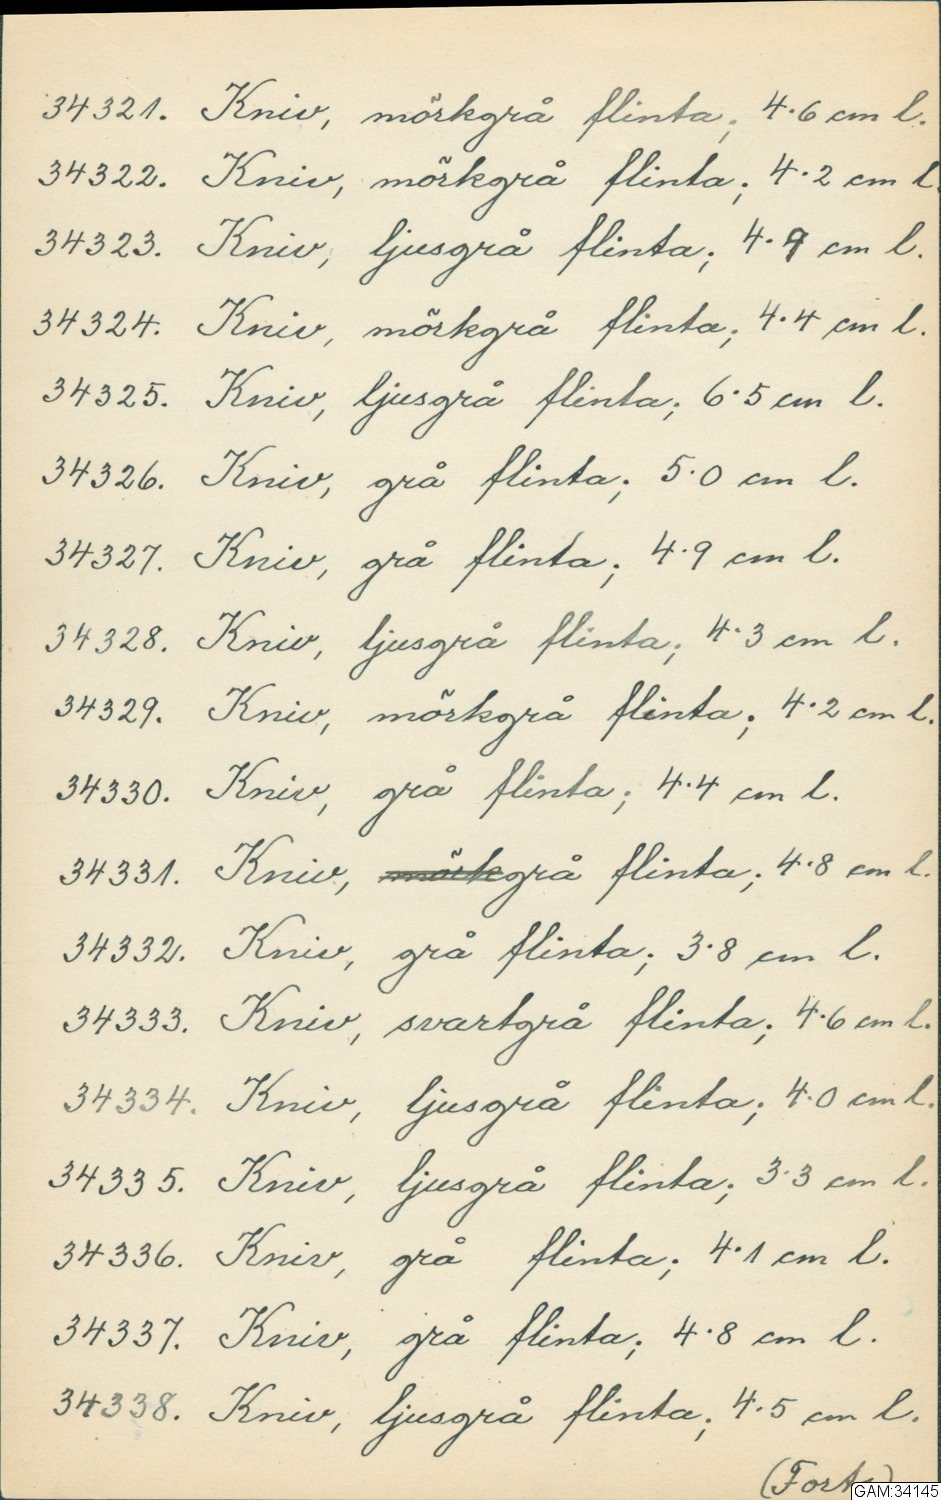 34321. Kniv, mörkgrå flinta; 4.6 cm l.
34322. Kniv, mörkgrå flinta; 4.2 cm l.
34323. Kniv, ljusgrå flinta; 4.9 cm l.
34324. Kniv, mörkgrå flinta; 4.4 cm l.
34325. Kniv, ljusgrå flinta; 6.5 cm l.
34326. Kniv, grå flinta; 5.0 cm l.
34327. Kniv, grå flinta; 4.9 cm l.
34328. Kniv, ljusgrå flinta; 4.3 cm l.
34329. Kniv, mörkgrå flinta; 4.2 cm l.
34330. Kniv, grå flinta; 4.4 cm l.
34331. Kniv, mörkgrå flinta; 4.8 cm l.
34332. Kniv, grå flinta; 3.8 cm l.
34333. Kniv, svartgrå flinta; 4.6 cm l.
34334. Kniv, ljusgrå flinta; 4.0 cm l.
34335. Kniv, ljusgrå flinta; 3.3 cm l.
34336. Kniv, grå flinta; 4.1 cm l.
34337. Kniv, grå flinta; 4.8 cm l.
34338. Kniv, ljusgrå flinta; 4.5 cm l.
(Forts)
GAM:34145